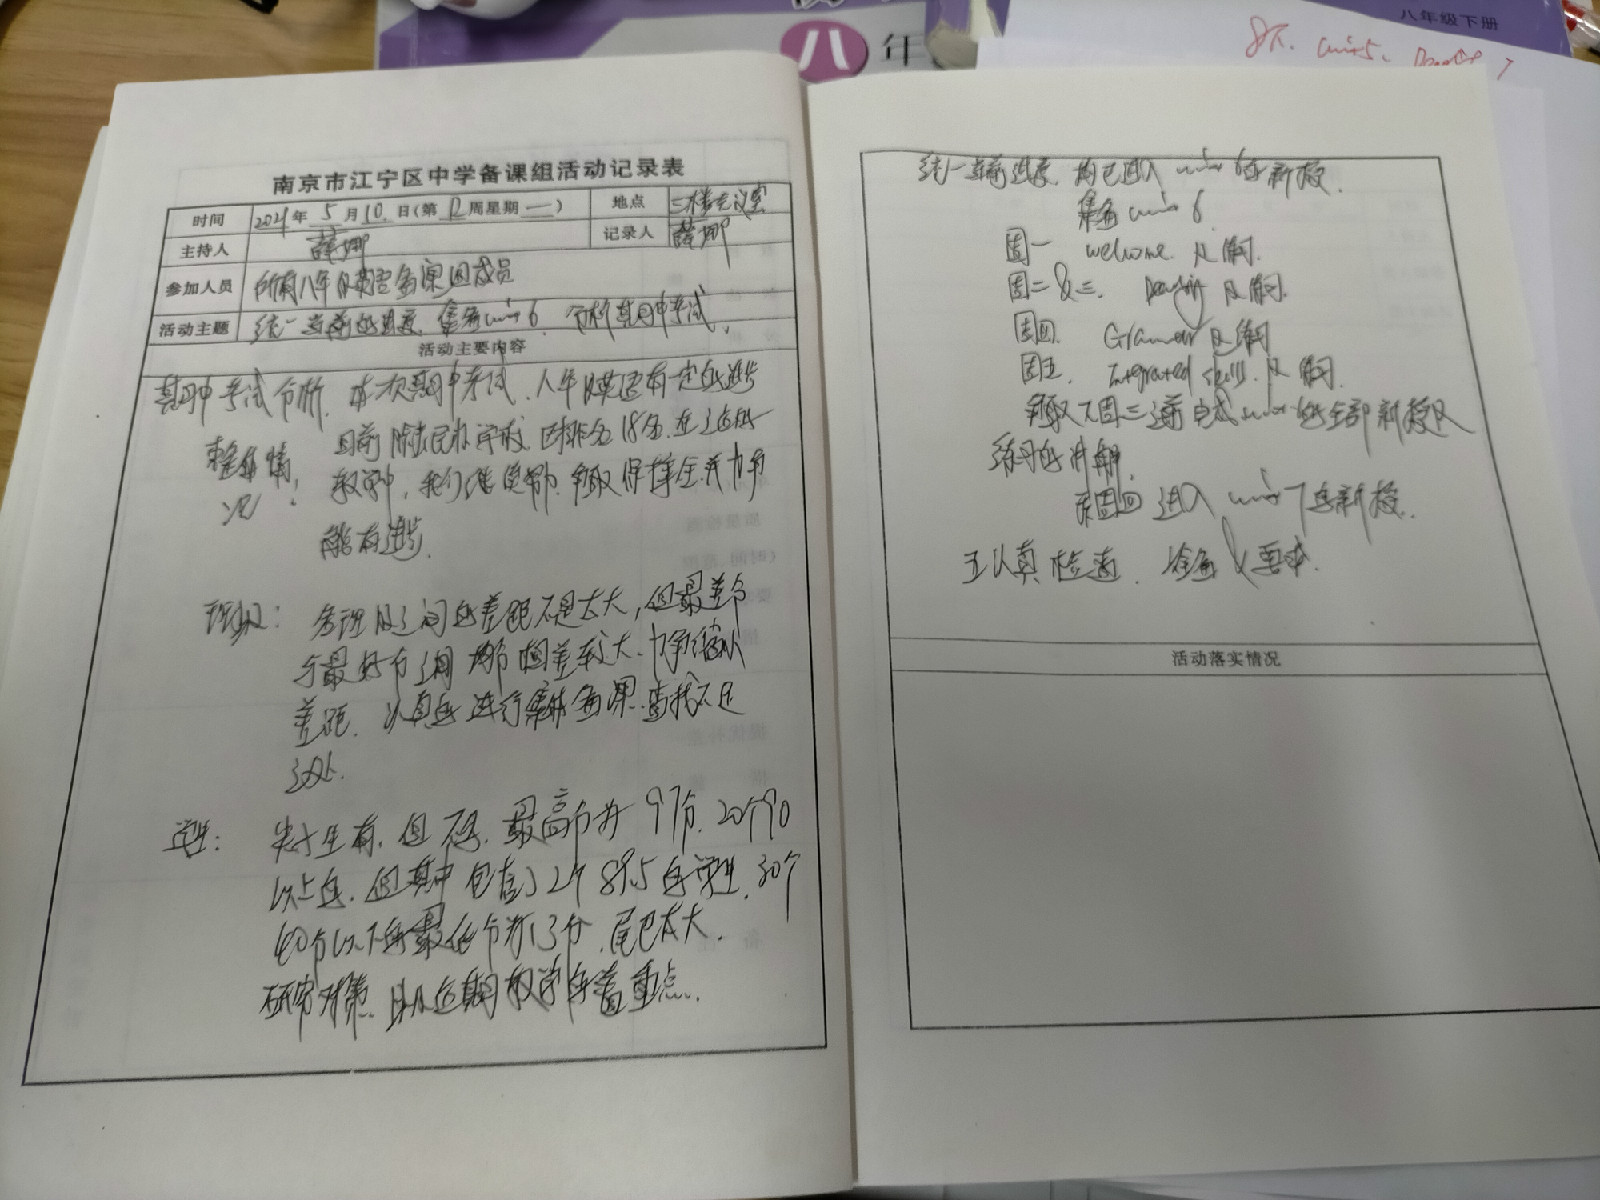 八年
八年级下册
南京市江宁区中学备课组活动记录表
时间 2021年5月10日(第12周星期一) 地点 三楼会议室
主持人 薛娜 记录人 薛娜
参加人员 所有八年级英语备课组成员
活动主题 统一当前的进度,集备unit 6,分析期中考试.
活动主要内容
期中考试分析. 本次期中考试,八年级英语有一定的进步
整体情况: 目前除去民办学校,区排名18名.在之后的
教学中,我们继续努力,争取保持全并力争
能有进步.
班级: 各班级之间的差距不是太大,但最差分
与最好分之间均分相差较大.力争缩小
差距. 认真的进行集体备课.查找不足
之处.
学生: 尖子生有,但不多,最高分为97分.20个90
以上的.但其中包含了2个89.5的学生.30个
40分以下的最低分为13分.尾巴太大.
研究对策. 近期教学的着重点.
统一当前进度,均已进入unit 6的新授.
集备unit 6
周一 welcome 及练习.
周二&三. Reading 及练习.
周四. Grammar 及练习
周五. Integrated skills 及练习.
争取下周三之前完成unit 6的全部新授及
练习的讲解.
下周四进入unit 7的新授.
认真检查
活动落实情况